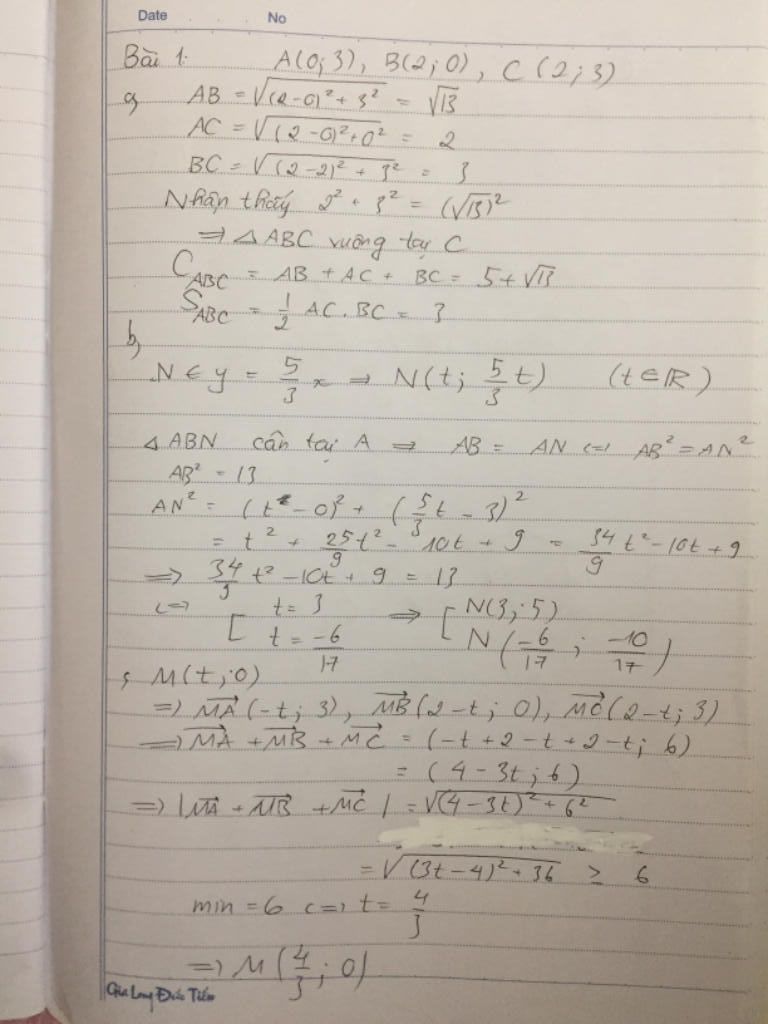 Date No
Bài 1: A(0;3), B(2;0), C(2;3)
a, AB = √((2-0)² + 3²) = √13
AC = √((2-0)² + 0²) = 2
BC = √((2-2)² + 3²) = 3
Nhận thấy 2² + 3² = (√13)²
⇒ △ABC vuông tại C
C_ABC = AB + AC + BC = 5 + √13
S_ABC = 1/2 AC.BC = 3
b,
N ∈ y = 5/3 x ⇒ N(t; 5/3 t) (t ∈ ℝ)
△ABN cân tại A ⇒ AB = AN ⇔ AB² = AN²
AB² = 13
AN² = (t - 0)² + (5/3 t - 3)²
= t² + 25t²/9 - 10t + 9 = 34/9 t² - 10t + 9
⇒ 34/9 t² - 10t + 9 = 13
⇔ [ t = 3 ⇒ [ N(3;5)
t = -6/17 N(-6/17; -10/17)
c, M(t;0)
⇒ MA→(-t; 3), MB→(2-t; 0), MC→(2-t; 3)
⇒ MA→ + MB→ + MC→ = (-t+2-t+2-t; 6)
= (4-3t; 6)
⇒ |MA→ + MB→ + MC→| = √((4-3t)² + 6²)
= √((3t-4)² + 36) ≥ 6
min = 6 ⇔ t = 4/3
⇒ M(4/3; 0)
Gia Long Đức Tiến